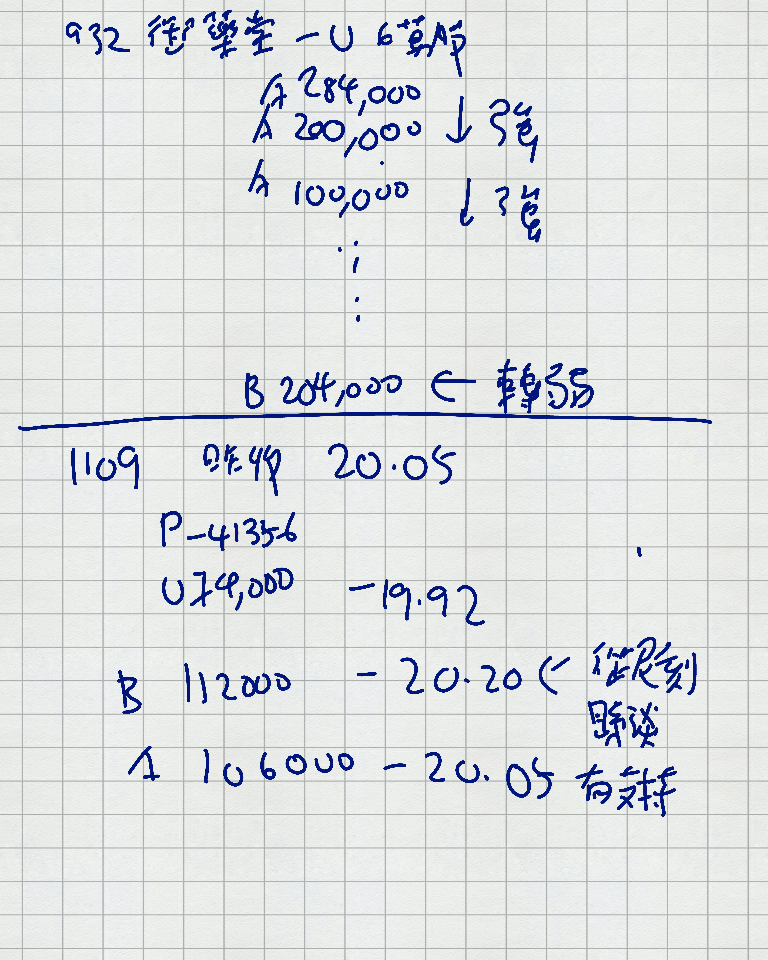 932 御藥堂 - U 6萬
A 284,000
A 200,000 ↓ 3隻
A 100,000 ↓ 3隻
B 204,000 ← 轉弱
1109 昨收 20.05
P-41356
U 74,000 - 19.92
B 112000 - 20.20 ←
A 106000 - 20.05 有支持